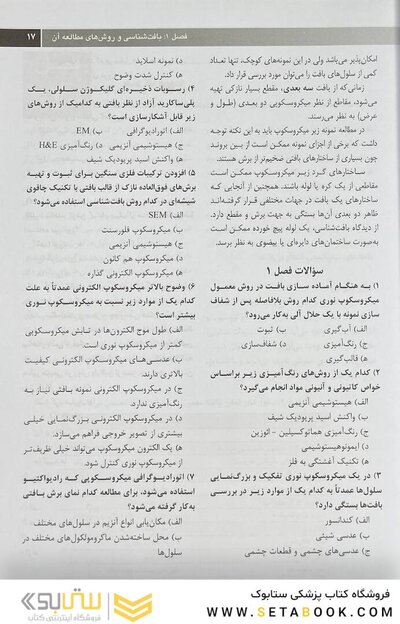 فصل ۱: بافت‌شناسی و روش‌های مطالعه آن
۱۷
امکان‌پذیر می‌باشد ولی در این نمونه‌های کوچک، تنها تعداد
کمی از سلول‌های بافت را می‌توان مورد بررسی قرار داد.
زمانی که از بافت سه بعدی، مقطع بسیار نازکی تهیه
می‌شود، مقاطع از نظر میکروسکوپی دو بعدی (طول و
عرض) به نظر می‌رسند.
در مطالعه نمونه زیر میکروسکوپ باید به این نکته توجه
داشت که برخی از اجزای نمونه ممکن است از بین بروند
چون بسیاری از ساختارهای بافتی ضخیم‌تر از برش هستند.
ساختارهای گرد زیر میکروسکوپ ممکن است
مقاطعی از یک کره یا لوله باشند. همچنین از آنجایی که
ساختارهای یک بافت در جهات مختلفی قرار گرفته‌اند
ظاهر دو بعدی آن‌ها بستگی به جهت برش و مقطع دارد.
از دیدگاه بافت‌شناسی، یک لوله پیچ خورده ممکن است
به‌صورت ساختمان‌های دایره‌ای یا بیضوی به نظر برسد.
سؤالات فصل ۱
۱) به هنگام آماده سازی بافت در روش معمول
میکروسکوپ نوری کدام روش بلافاصله پس از شفاف
سازی نمونه با یک حلال آلی به‌کار می‌رود؟
الف) آب‌گیری
ب) ثبوت
ج) رنگ‌آمیزی
د) شفاف‌سازی
ه) قالب‌گیری
۲) کدام یک از روش‌های رنگ‌آمیزی زیر براساس
خواص کاتیونی و آنیونی مواد انجام می‌گیرد؟
الف) هیستوشیمی آنزیمی
ب) واکنش اسید پریودیک شیف
ج) رنگ‌آمیزی هماتوکسیلین - ائوزین
د) ایمونوهیستوشیمی
ه) تکنیک آغشتگی به فلز
۳) در یک میکروسکوپ نوری تفکیک و بزرگ‌نمایی
سلول‌ها عمدتاً به کدام یک از موارد زیر در بررسی
بافت‌ها بستگی دارد؟
الف) کندانسور
ب) عدسی شیئی
ج) عدسی‌های چشمی و قطعات چشمی
د) نمونه اسلاید
ه) کنترل شدت وضوح
۴) رسوبات ذخیره‌ای گلیکوژن سلولی، یک
پلی‌ساکارید آزاد از نظر بافتی به کدامیک از روش‌های
زیر قابل آشکارسازی است؟
الف) اتورادیوگرافی
ب) EM
ج) هیستوشیمی آنزیمی
د) رنگ‌آمیزی H&E
ه) واکنش اسید پریودیک شیف
۵) افزودن ترکیبات فلزی سنگین برای ثبوت و تهیه
برش‌های فوق‌العاده نازک از قالب بافتی با تکنیک چاقوی
شیشه‌ای در کدام روش بافت‌شناسی استفاده می‌شود؟
الف) SEM
ب) میکروسکوپ فلورسنت
ج) هیستوشیمی آنزیمی
د) میکروسکوپ هم کانون
ه) میکروسکوپ الکترونی گذاره
۶) وضوح بالاتر میکروسکوپ الکترونی عمدتاً به علت
کدام یک از موارد زیر نسبت به میکروسکوپ نوری
بیشتر است؟
الف) طول موج الکترون‌ها در تابش میکروسکوپی
کمتر از میکروسکوپ نوری است.
ب) عدسی‌های میکروسکوپ الکترونی کیفیت
بالاتری دارند.
ج) در میکروسکوپ الکترونی نمونه بافتی نیاز به
رنگ‌آمیزی ندارد.
د) در میکروسکوپ الکترونی بزرگ‌نمایی خیلی
بیشتری از تصویر خروجی فراهم می‌سازد.
ه) یک الکترون میکروسکوپ می‌تواند خیلی ظریف‌تر
از میکروسکوپ نوری کنترل شود.
۷) اتورادیوگرافی میکروسکوپی که رادیواکتیو
استفاده می‌شود، برای مطالعه کدام نمای برش بافتی
به‌کار گرفته می‌شود؟
الف) مکان‌یابی انواع آنزیم در سلول‌های مختلف
ب) محل ساخته‌شدن ماکرومولکول‌های مختلف در
سلول‌ها
فروشگاه کتاب پزشکی ستابوک
WWW.SETABOOK.COM
ستابوک
فروشگاه اینترنتی کتاب